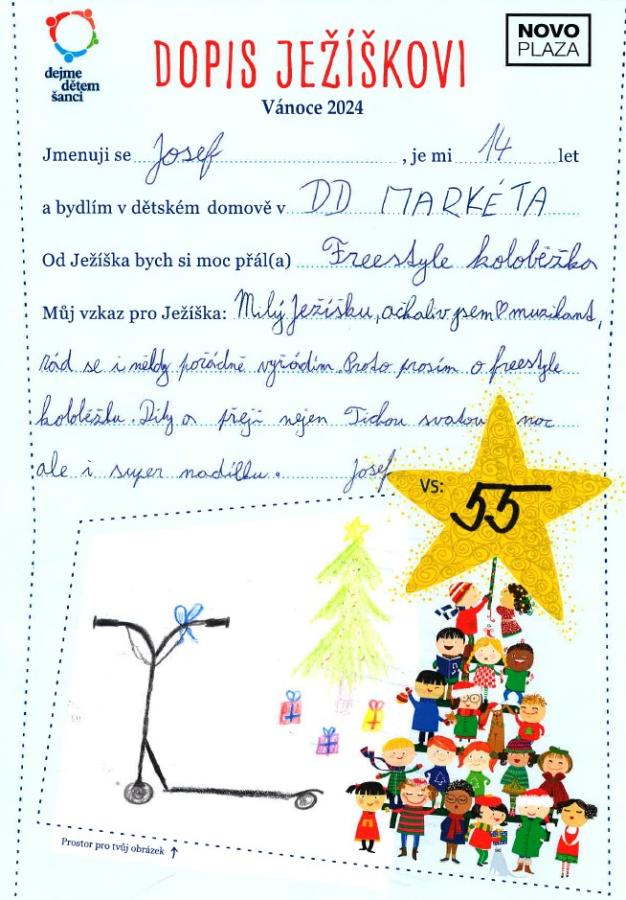 dejme
dětem
šanci
DOPIS JEŽÍŠKOVI
NOVO
PLAZA
Vánoce 2024
Jmenuji se Josef, je mi 14 let
a bydlím v dětském domově v DD MARKÉTA
Od Ježíška bych si moc přál(a) Freestyle koloběžka
Můj vzkaz pro Ježíška: Milý Ježíšku, ačkoliv jsem muzikant,
rád se i někdy pořádně vyřádím. Proto prosím o freestyle
koloběžku. Díky a přeji nejen Tichou svatou noc
ale i super nadílku. Josef
VS: 55
Prostor pro tvůj obrázek ↑